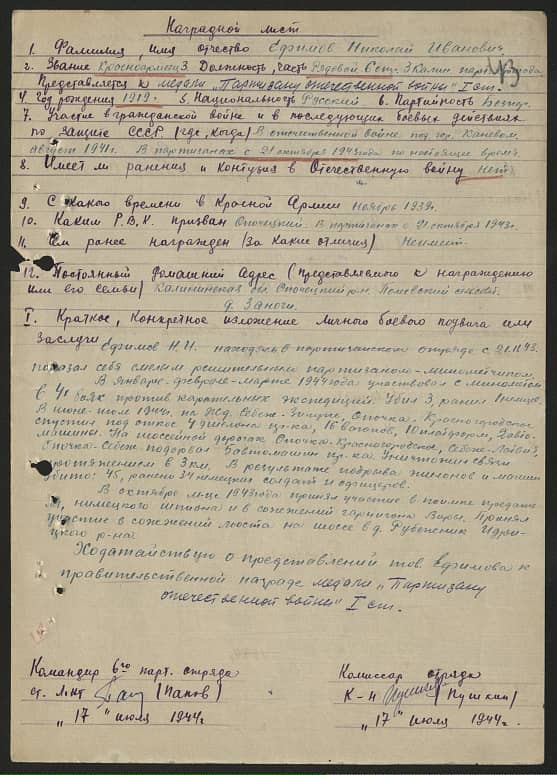 Наградной лист
1. Фамилия, имя отчество Ефимов Николай Иванович
2. Звание Красноармеец 3. Должность, часть Рядовой 6 отр. 3 Калин. парт.
43
Представляется к медали „Партизану отечественной войны" I ст.
4. Год рождения 1919г. 5. Национальность Русский. 6. Партийность Беспар.
7. Участие в гражданской войне и в последующих боевых действиях
по защите СССР (где, когда) В отечественной войне под гор. Каневом,
август 1941г. В партизанах с 21 октября 1943 года по настоящее время.
8. Имеет ли ранения и контузия в Отечественную войну нет
9. С какого времени в Красной Армии ноябрь 1939г.
10. Каким Р.В.К. призван Опочецкий. В партизанах с 21 октября 1943г.
11. Чем ранее награжден (за какие отличия) Не имеет.
12. Постоянный домашний адрес (представляемого к награждению
или его семьи) Калининская обл. Опочецкий р-н.
д. Заноги.
I. Краткое, конкретное изложение личного боевого подвига или
заслуги
Ефимов Н.И. находясь в партизанском отряде с 21.11.43.
показал себя смелым решительным партизаном-минометчиком.
В Январе-феврале-марте 1944 года участвовал с минометом
в 4х боях против карательных экспедиций. Убил 3, ранил 1 немцев.
В июне-июле 1944г. на ж.д. Себеж-Зилупе, Опочка-Красногородское
спустил под откос 4 эшелона пр-ка, 16 вагонов, 10 платформ, 2 авто-
машины. На шоссейной дорогах Опочка-Красногородское, Себеж-
Опочка-Себеж подорвал 5 автомашин пр-ка. Уничтожил связи
протяжением в 3 км. В результате подрыва эшелонов и машин
убито: 45, ранено 34 немецких солдат и офицеров.
В октябре м-це 1943 года принял участие в поимке предате-
ля, немецкого шпиона и в сожжений гарнизона Вары. Принял
участие в сожжений моста на шоссе в д. Рубежник Идри-
цкого р-на.
Ходатайствую о представлений тов. Ефимова к
правительственной награде медали „Партизану
отечественной войны" I ст.
Командир 6го парт. отряда
ст. л-нт (Панов)
„17" июля 1944г.
Комиссар отряда
к-н (Пушкин)
„17" июля 1944г.